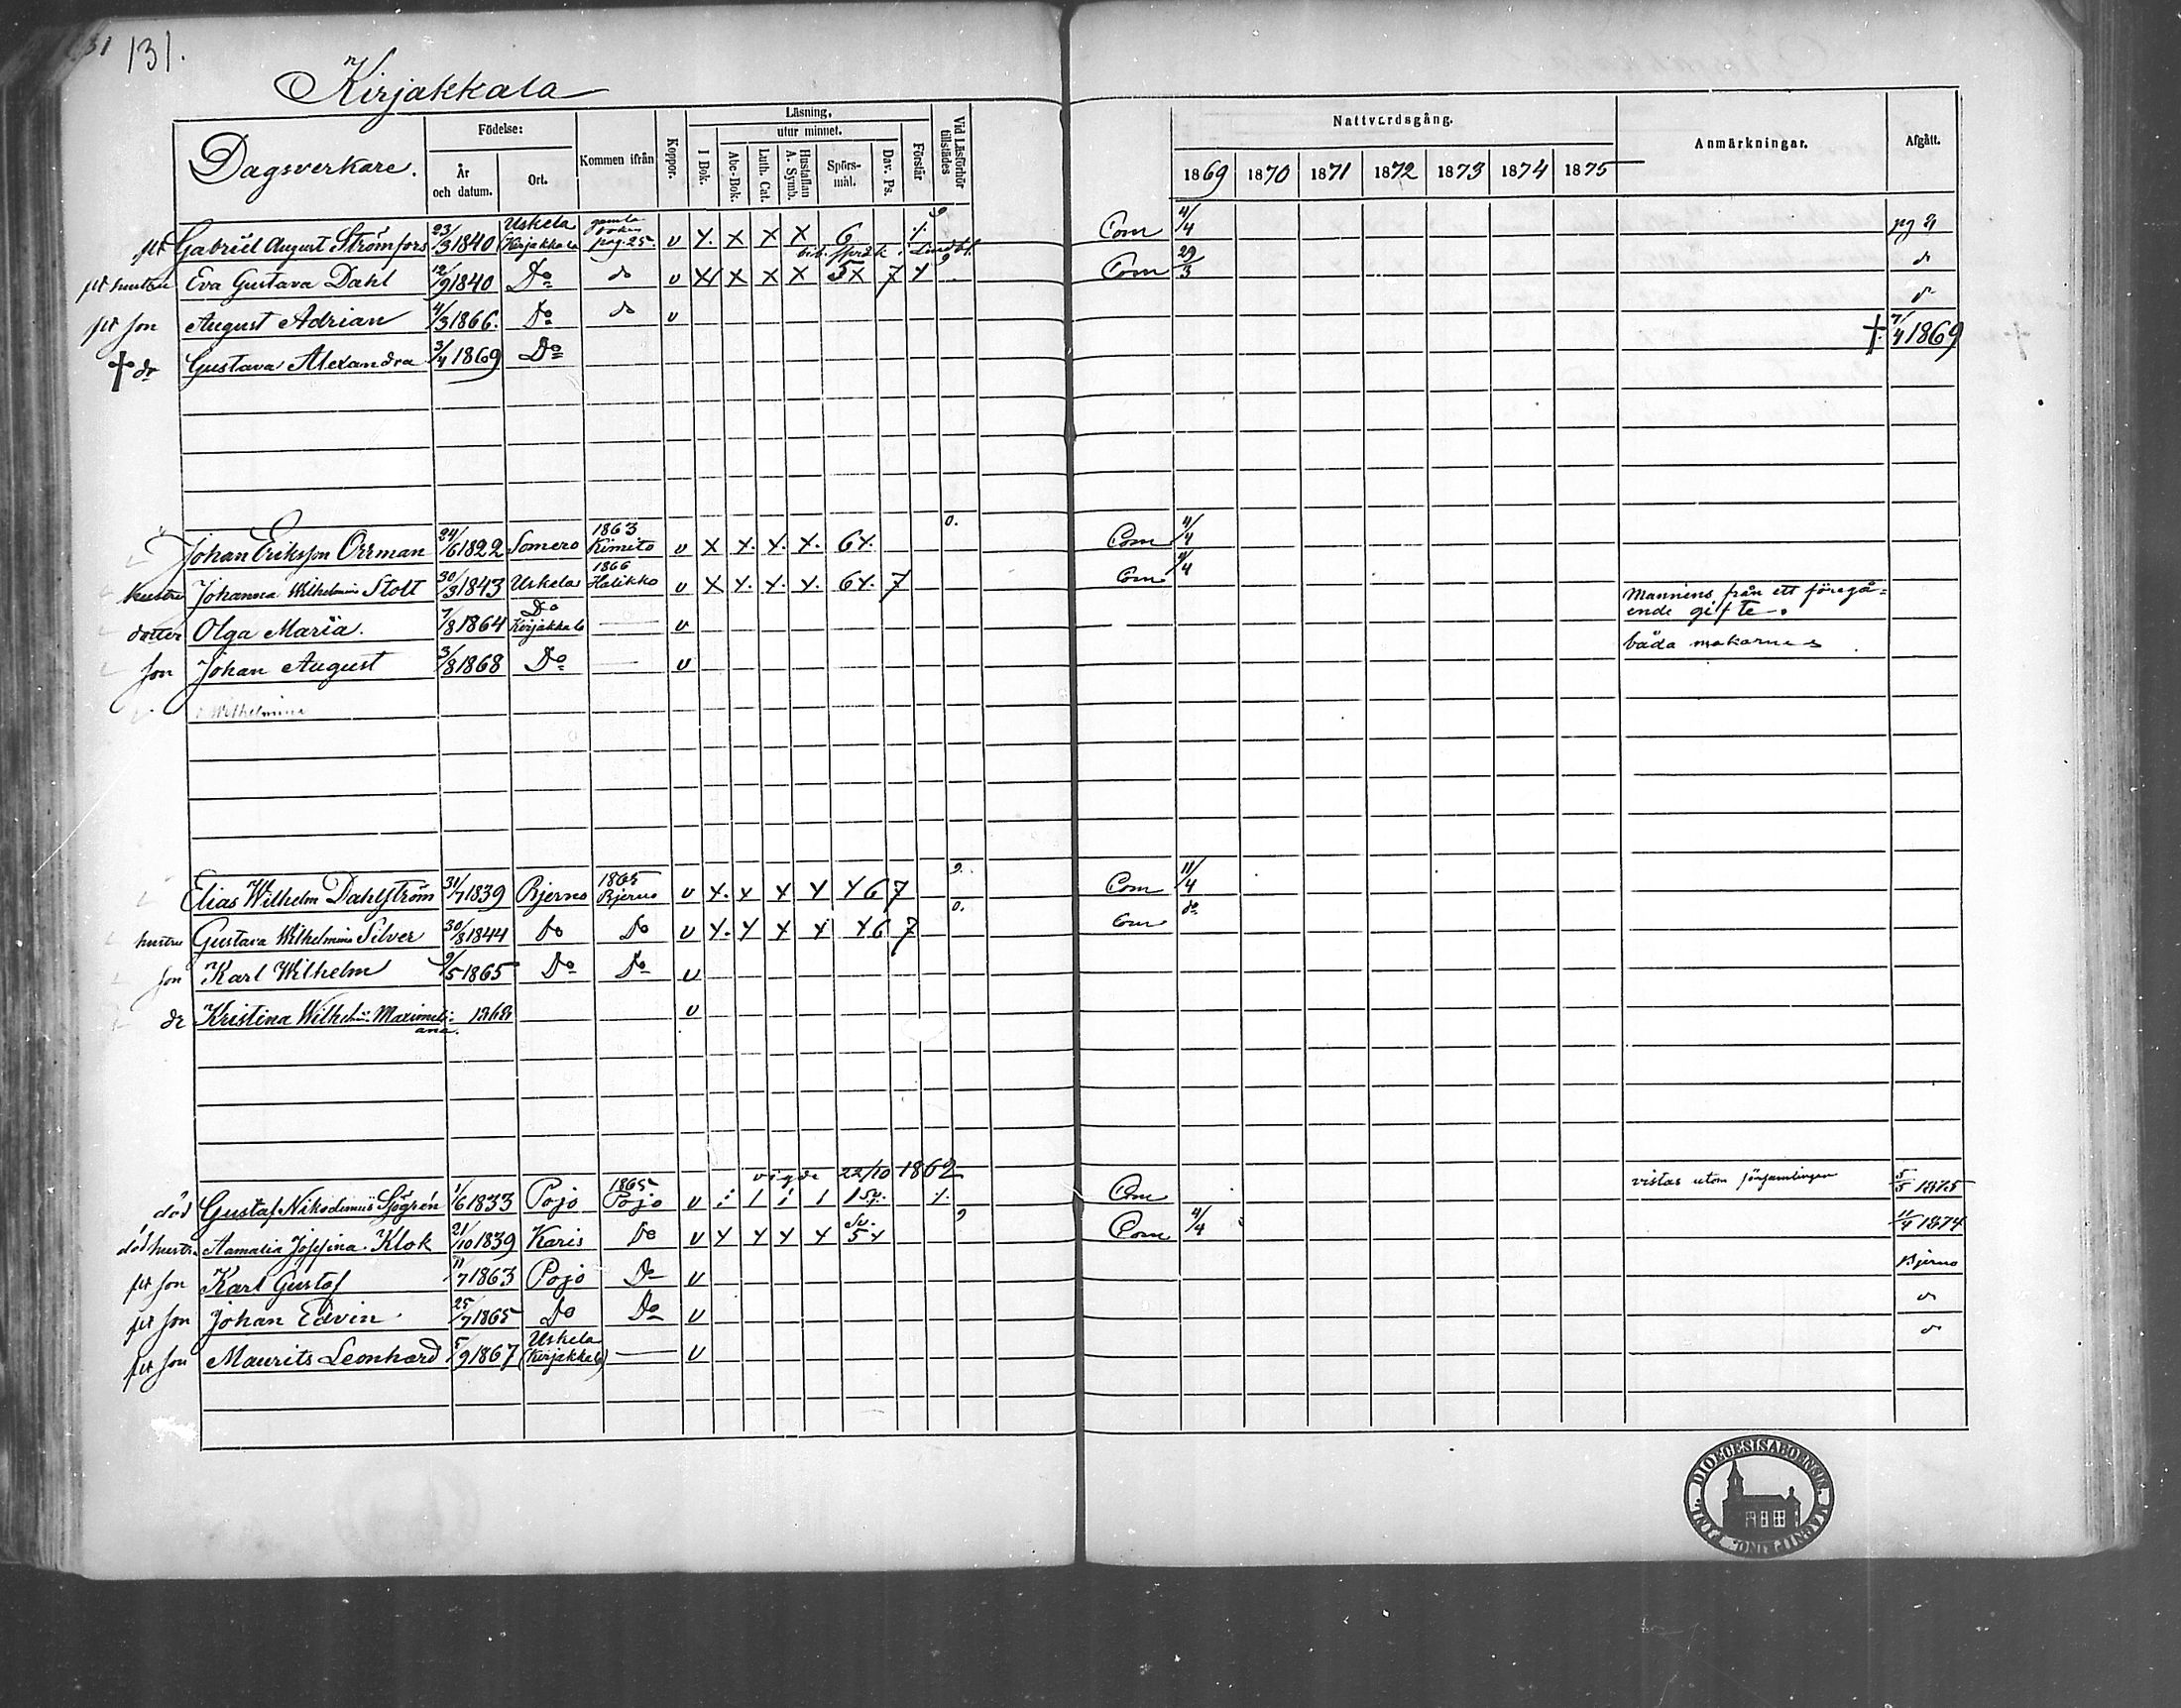 131.
Kirjakkala
Dagsverkare.
Födelse:
År och datum.
Ort.
Kommen ifrån
Koppor.
Läsning,
utur minnet.
I Bok.
Abc-Bok.
Luth. Cat.
Hustaflan A. Symb.
Spörsmål.
Dav. Ps.
Förstår
Vid Läsförhör tillstädes
Nattvardsgång.
1869 1870 1871 1872 1873 1874 1875
Anmärkningar.
Afgått.
flt Gabriel August Strömfors 23/3 1840 Uskela Kirjakkala pag. 25 v x. x x x 6 Com 4/4
flt hustru Eva Gustava Dahl 12/9 1840 Do do v x x x x 5x 7 x Com 29/3 do
flt son August Adrian 4/3 1866. Do do v
† dr Gustava Alexandra 3/4 1869 Do † 7/4 1869
Johan Eriksson Orrman 24/6 1822 Somero 1863 Kimito v x x. x. x. 6x. 0. Com 4/4
hustru Johanna Wilhelmina Stolt 30/3 1843 Uskela 1866 Halikko v x x. x. x. 6x. 7 Com 4/4
dotter Olga Maria. 7/8 1864 Do Kirjakkala — v Mannens från ett föregå=
ende gifte.
son Johan August 3/8 1868 Do — v båda makarnes
Wilhelmina
Elias Wilhelm Dahlström 31/7 1839 Bjerno 1865 Bjerno v x. x x x x 6 7 Com 11/4
hustru Gustava Wilhelmina Silver 30/8 1844 Do Do v x. x x x x6 7 0. Com do
son Karl Wilhelm 9/5 1865 Do Do v
dr Kristina Wilhelm: Maximili=
ana. 1868 v
vigde 22/10 1862
död Gustaf Nikodemus Sjögrén 1/6 1833 Pojo 1865 Pojo v Com vistas utom församlingen 5/5 1875
död hustru Aamalia Josefina Klok 21/10 1839 Karis Do v x x x x 5x Com 4/4 11/4 1874
flt son Karl Gustaf 11/7 1863 Pojo Do v Bjerno
flt son Johan Edvin 25/7 1865 Do Do v do
flt son Maurits Leonhard 5/9 1867 Uskela (Kirjakkala) — v do